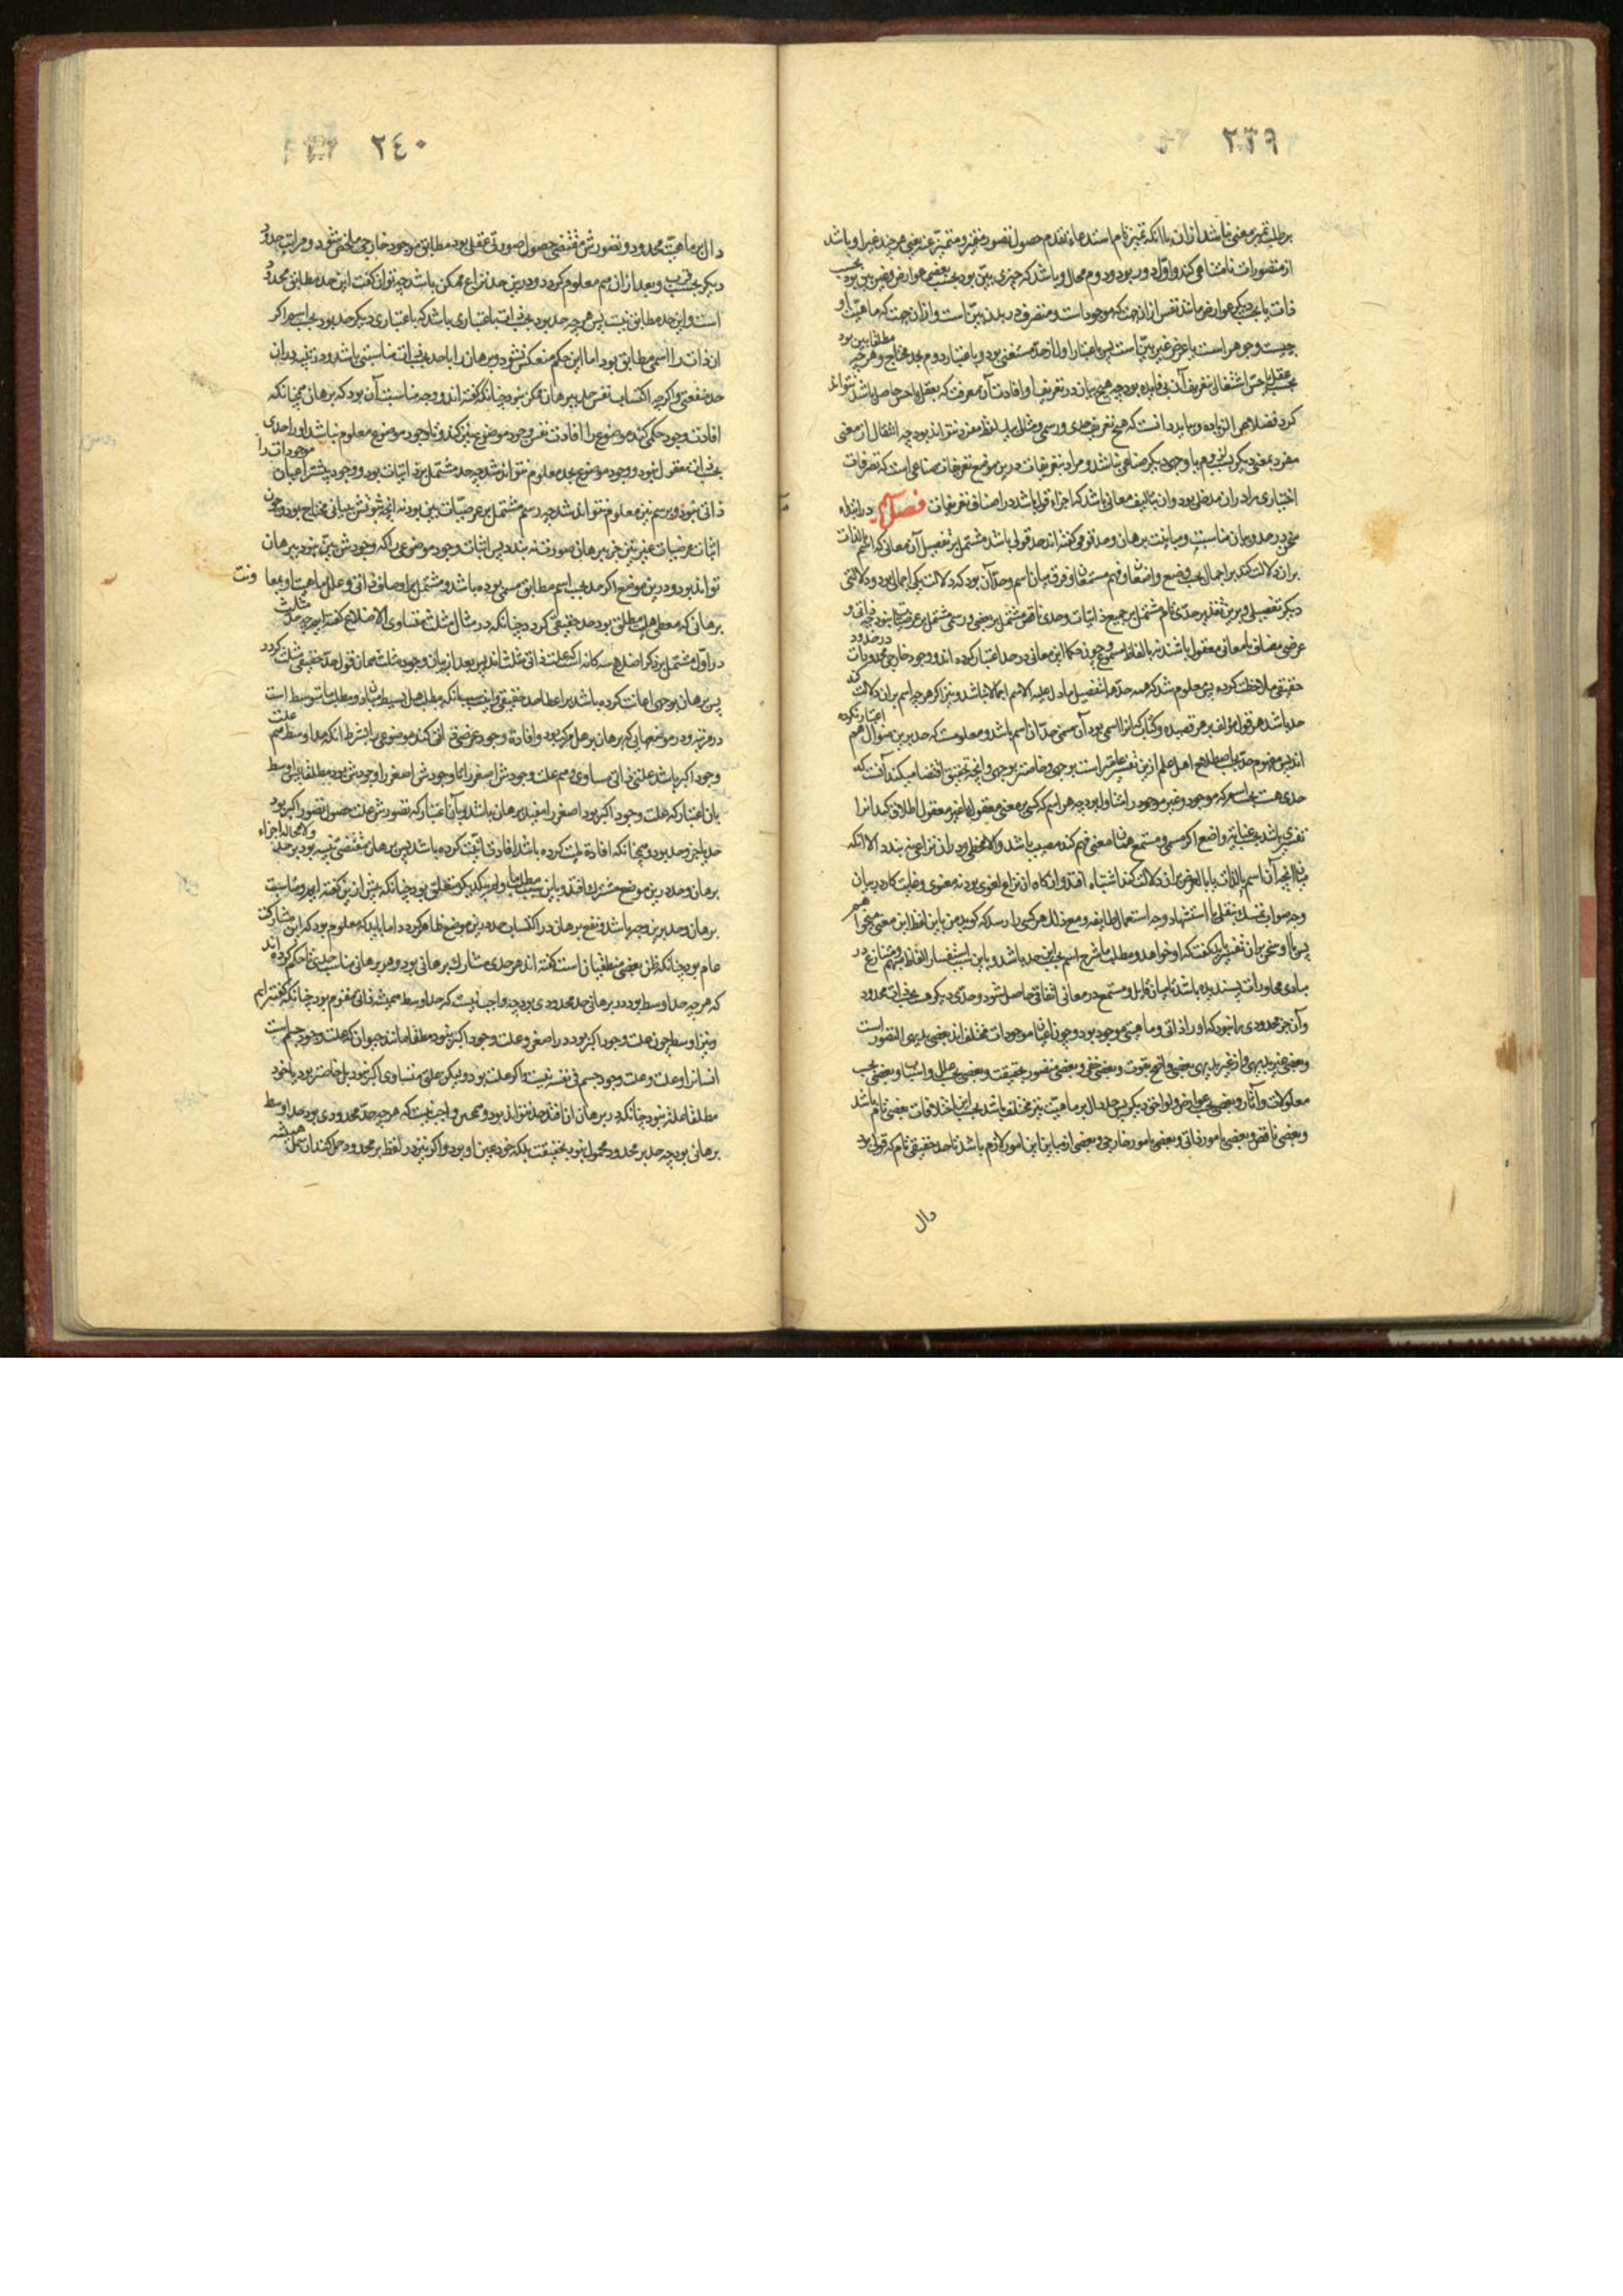 ٢٣٩
بر طلب تمیز معنی باشد از ان با انکه تمیز تام استدعاء تقدم حصول تصور متمیز و متمیز عنه یعنی هر چند غیر او باشد
از متصورات نامتناهی کند و اول دور بود و دوم محال و باشد که چیزی بین بود بحسب بعضی عوارض و غیر بین بود بحسب
ذات یا بحسب دیگر عوارض مانند نفس از ان جهت که موجود است و متصرف در بدن بین است و از ان جهت که ماهیت او
چیست و جوهر است یا عرض غیر بین است پس باعتبار اول از حد مستغنی بود و باعتبار دوم بحد محتاج و هر چه مطلقا بین بود
بحسب عقل یا حس اشتغال بتعریف آن بی فایده بود چه هیچ بیان در تعریف او افادت آن معرفت که بعقل یا حس حاصل باشد نتواند
کرد فضلا عن الزیاده و بباید دانست که هیچ تعریف حدی و رسمی و مثالی بلفظ مفرد نتواند بود چه انتقال از معنی
مفرد بمعنی دیگر بلزوم یا وجهی دیگر صناعی نباشد و مراد بتعریفات درین موضع تعریفات صناعی است که تصرفات
اختیاری را در ان مدخلی بود و ان بتألیف معانی باشد که اجزاء قول باشد در اصناف تعریفات فصل سیم در ابتداء
سخن در حد و بیان مناسبت و مباینت برهان و حد قومی گفته اند حد قولی باشد مشتمل بر تفصیل آن معانی که اسم بالذات
بران دلالت کند بر اجمال بحسب وضع واضعان و فهم مستمعان و فرق میان اسم و حد آن بود که دلالت یکی اجمالی بود و دلالت
دیگر تفصیلی و برین تقدیر حدی تام مشتمل بر جمیع ذاتیات و حدی ناقص مشتمل بر بعضی و رسمی مشتمل بر عرضیات نبود چه ذاتی و
عرضی مضاف با معانی معقول باشند نه بالفاظ مسموع و چون حکما این معانی در حد اعتبار کرده اند و وجود خارجی محدودات در حدود
حقیقی ملاحظت کرده پس معلوم شد که همه حدها تفصیل ما دل علیه الاسم اجمالا نباشد و نیز اگر هر چه اسم بران دلالت کند
حد باشد هر قول مؤلف بر هر قصیده و کتاب که انرا اسمی بود آن مسمی حد آن اسم باشد و معلومست که حد برین منوال هم اعتبار نکرده
اند پس مفهوم حد بحسب اصطلاح اهل علم ازین تفسیر عامتر است بوجهی و خاصتر بوجهی و آنچه تحقیق اقتضا میکند آنست که
حدی هست بحسب اسم که موجود و غیر موجود را شامل بود چه هر اسم که کسی بمعنی معقول یا غیر معقول اطلاق کند انرا
تفسیری باشد بحسب عنایت واضع اگر مسمی و مستمع همان معنی فهم کند مصیب باشد و الا مخطی و در ان نزاعی نبندد الا آنکه
در انچه آن اسم بالذات یا بالعرض بران دلالت کند اشتباه افتد و ان گاه ان نزاع لغوی بود نه معنوی و غایت کار در بیان
وجه صواب تمسک بنقل یا استشهاد وجه استعمال طایفه و مع ذلک هر کسی را رسد که گوید من باین لفظ این معنی میخواهم
پس با او سخن بر ان تفسیر باید گفت که او خواهد و مطلب ما شرح اسم بحسب این حد باشد و باین سبب استفسار الفاظ مبهم و متنازع در
مبادی محاورات پسندیده باشد تا میان قایل و مستمع در معانی اتفاق حاصل شود و حدی دیگر هست بحسب ذات محدود
وآن جز محدودی را نبود که او را ذاتی و ماهیتی موجود بود و چون اعیان موجودات مختلف اند بعضی بدیهی التصور است
و بعضی غیر بدیهی و از غیر بدیهی بعضی واضح بقوت و بعضی خفی و بعضی متصور بحقیقت و بعضی بحسب علل و اسباب و بعضی بحسب
معلولات و آثار و بعضی بحسب عوارض و لواحق دیگر پس حد دال بر ماهیت نیز مختلف باشد بحسب این اختلافات بعضی تام باشد
و بعضی ناقص و بعضی بامور ذاتی و بعضی بامور خارجی و بعضی از مباین این امور لازم باشد تا حد حقیقی تام که قولی بود
دال
٢٤٠
دال بر ماهیت محدود و تصورش مقتضی حصول صورتی عقلی بود مطابق موجود خارجی ملخص شود و مراتب حدود
دیگر بحسب قرب و بعد از ان هم معلوم گردد و درین حد نزاع ممکن باشد چه توان گفت این حد مطابق محدود
است و این حد مطابق نیست پس هر چه حد بود بحسب ذات باعتباری باشد که باعتباری دیگر حد بود بحسب اسم اگر
ان ذات را اسمی مطابق بود اما این حکم منعکس نشود و برهان را با حد بحسب ذات مناسبتی باشد و در تنبیه بران
حد منفعتی و اگر چه اکتساب نفس حد ببرهان ممکن نبود چنانکه گفته اند و وجه مناسبت آن بود که برهان همچنانکه
افادت وجود حکمی کند موضوع را افادت نفس وجود موضوع نیز کند و تا وجود موضوع معلوم نباشد او را حدی
بحسب ذات معقول نبود و وجود موضوع بحد معلوم نتواند شد چه حد مشتمل بر ذاتیات بود و وجود بیشتر اعیان موجودات را
ذاتی نبود و برسم نیز معلوم نتواند شد چه رسم مشتمل بر عرضیات بین بود نه انچه ثبوتش ببیانی محتاج بود و چون
اثبات عرضیات غیر بین جز ببرهان صورت نبندد پس اثبات وجود موضوعی را که وجودش بین نبود ببرهان
تواند بود و درین موضع اگر حد بحسب اسم مطابق مسمی بوده باشد و مشتمل بر اوصاف ذاتی و علل ماهیت او بمعاونت
برهانی که معطی هل مطلق بود حد حقیقی گردد چنانکه در مثال مثلث متساوی الاضلاع گفته ایم چه حد مثلث
در اول مشتمل بر ذکر اضلاع سه گانه است که علت ذاتی مثلث اند پس بعد از بیان وجود مثلث همان قول حد حقیقی مثلث گردد
پس برهان بوجهی اعانت کرده باشد بر اعطاء حد حقیقی و این سبب انکه مطلب هل بسیط میان دو مطلب ما متوسط است
در مرتبه و در موضعهایی که برهان بر هل مرکب بود و افاده وجود عرضی ذاتی کند موضوعی را بشرط انکه حد اوسط هم علت
وجود اکبر باشد علتی ذاتی مساوی و هم علت وجودش اصغر را تا وجودش اصغر را وجودش بود مطلقا پس اوسط
بان اعتبار که علت وجود اکبر بود اصغر را مفید برهان باشد و بآن اعتبار که تصورش علت حصول تصور اکبر بود
حد یا جزو حد بود و همچنانکه افاده لمیت کرده باشد افادت مائیت کرده باشد پس برهان مقتضی تنبیه بود بر حد و لامحاله اجزاء
برهان و حد درین موضع مشترک افتد و باین سبب مطلب ما و لم بیکدیگر متعلق بود چنانکه پیش ازین گفته ایم و مناسبت
برهان و حد برین وجه باشد و نفع برهان در اکتساب حد درین موضع ظاهر گردد اما باید که معلوم بود که این مشارکت
عام بود چنانکه ظن بعضی منطقیان است که گفته اند هر حدی مشارک برهانی بود و هر برهانی مناسب حدی تا حکم کرده اند
که هر چه حد اوسط بود در برهانی حد محدودی بود چه واجب نیست که حد اوسط همیشه ذاتی مقوم بود چنانکه گفته ایم
و نیز اوسط چون علت وجود اکبر بود در اصغر و علت وجود اکبر نبود مطلقا مانند حیوان که علت وجود جسم است
انسان را و علت وجود جسم فی نفسه نیست و اگر علت بود ولیکن علتی متساوی اکبر نبود بل خاصتر بود یا خود
مطلقا علت نبود چنانکه در برهان ان افتد حد نتواند بود و همچنین واجب نیست که هر چه حد محدودی بود حد اوسط
برهانی بود چه حد بر محدود محمول نبود بحقیقت بلکه خود عین او بود و اگر نیز در لفظ بر محدود حمل کنند ان حمل همیشه